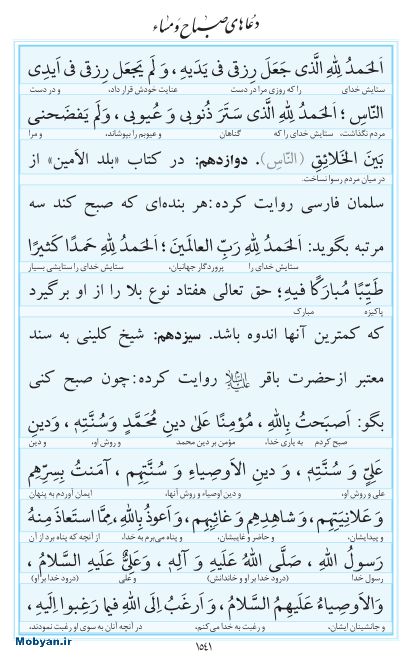 دعاهای صباح و مساء
اَلحَمدُ لِلّٰهِ الَّذی جَعَلَ رِزقی فی یَدَیهِ ، وَ لَم یَجعَل رِزقی فی اَیدِی
ستایش خدای را که روزی مرا در دست عنایت خودش قرار داد، و در دست
النّاسِ ؛ اَلحَمدُ لِلّٰهِ الَّذی سَتَرَ ذُنوبی وَ عُیوبی ، وَلَم یَفضَحنی
مردم نگذاشت، ستایش خدای را که گناهان و عیوبم را بپوشاند، و مرا
بَینَ الخَلائِقِ (النّاسِ). دوازدهم: در کتاب «بلد الأمین» از
در میان مردم رسوا نساخت.
سلمان فارسی روایت کرده: هر بنده‌ای که صبح کند سه
مرتبه بگوید: اَلحَمدُ لِلّٰهِ رَبِّ العالَمینَ ؛ اَلحَمدُ لِلّٰهِ حَمدًا کَثیرًا
ستایش خدای را پروردگار جهانیان، ستایش خدای را ستایشی بسیار
طَیِّبًا مُبارَکًا فیهِ ؛ حق تعالی هفتاد نوع بلا را از او برگیرد
پاکیزه مبارک
که کمترین آنها اندوه باشد. سیزدهم: شیخ کلینی به سند
معتبر از حضرت باقر علیه‌السلام روایت کرده: چون صبح کنی
بگو: اَصبَحتُ بِاللّٰهِ ، مُؤمِنًا عَلیٰ دینِ مُحَمَّدٍ وَسُنَّتِهِ ، وَدینِ
صبح کردم به یاری خدا، مؤمن بر دین محمد و روش او، و دین
عَلِیٍّ وَ سُنَّتِهِ ، وَ دینِ الاَوصِیاءِ وَ سُنَّتِهِم ، آمَنتُ بِسِرِّهِم
علی و روش او، و دین اوصیاء و روش آنها، ایمان آوردم به پنهان
وَ عَلانِیَتِهِم ، وَشاهِدِهِم وَغائِبِهِم، وَ اَعوذُ بِاللّٰهِ، مِمَّا استَعاذَ مِنهُ
و پیدایشان، و حاضر و غایبشان، و پناه می‌برم به خدا، از آنچه که پناه برد از آن
رَسولُ اللّٰهِ ، صَلَّی اللّٰهُ عَلَیهِ وَ آلِهِ ، وَعَلِیٌّ عَلَیهِ السَّلامُ ،
رسول خدا (درود خدا بر او و خاندانش) و علی (درود خدا بر او)
وَالاَوصِیاءُ عَلَیهِمُ السَّلامُ ، وَ اَرغَبُ اِلَی اللّٰهِ فیما رَغِبوا اِلَیهِ،
و جانشینان ایشان، و رغبت به خدا می‌کنم، در آنچه آنان به سوی او رغبت نمودند،
۱۵۴۱
Mobyan.ir